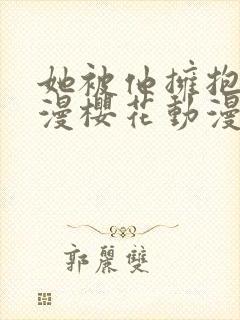 她被他擁抱
漫櫻花動漫
郭麗雙